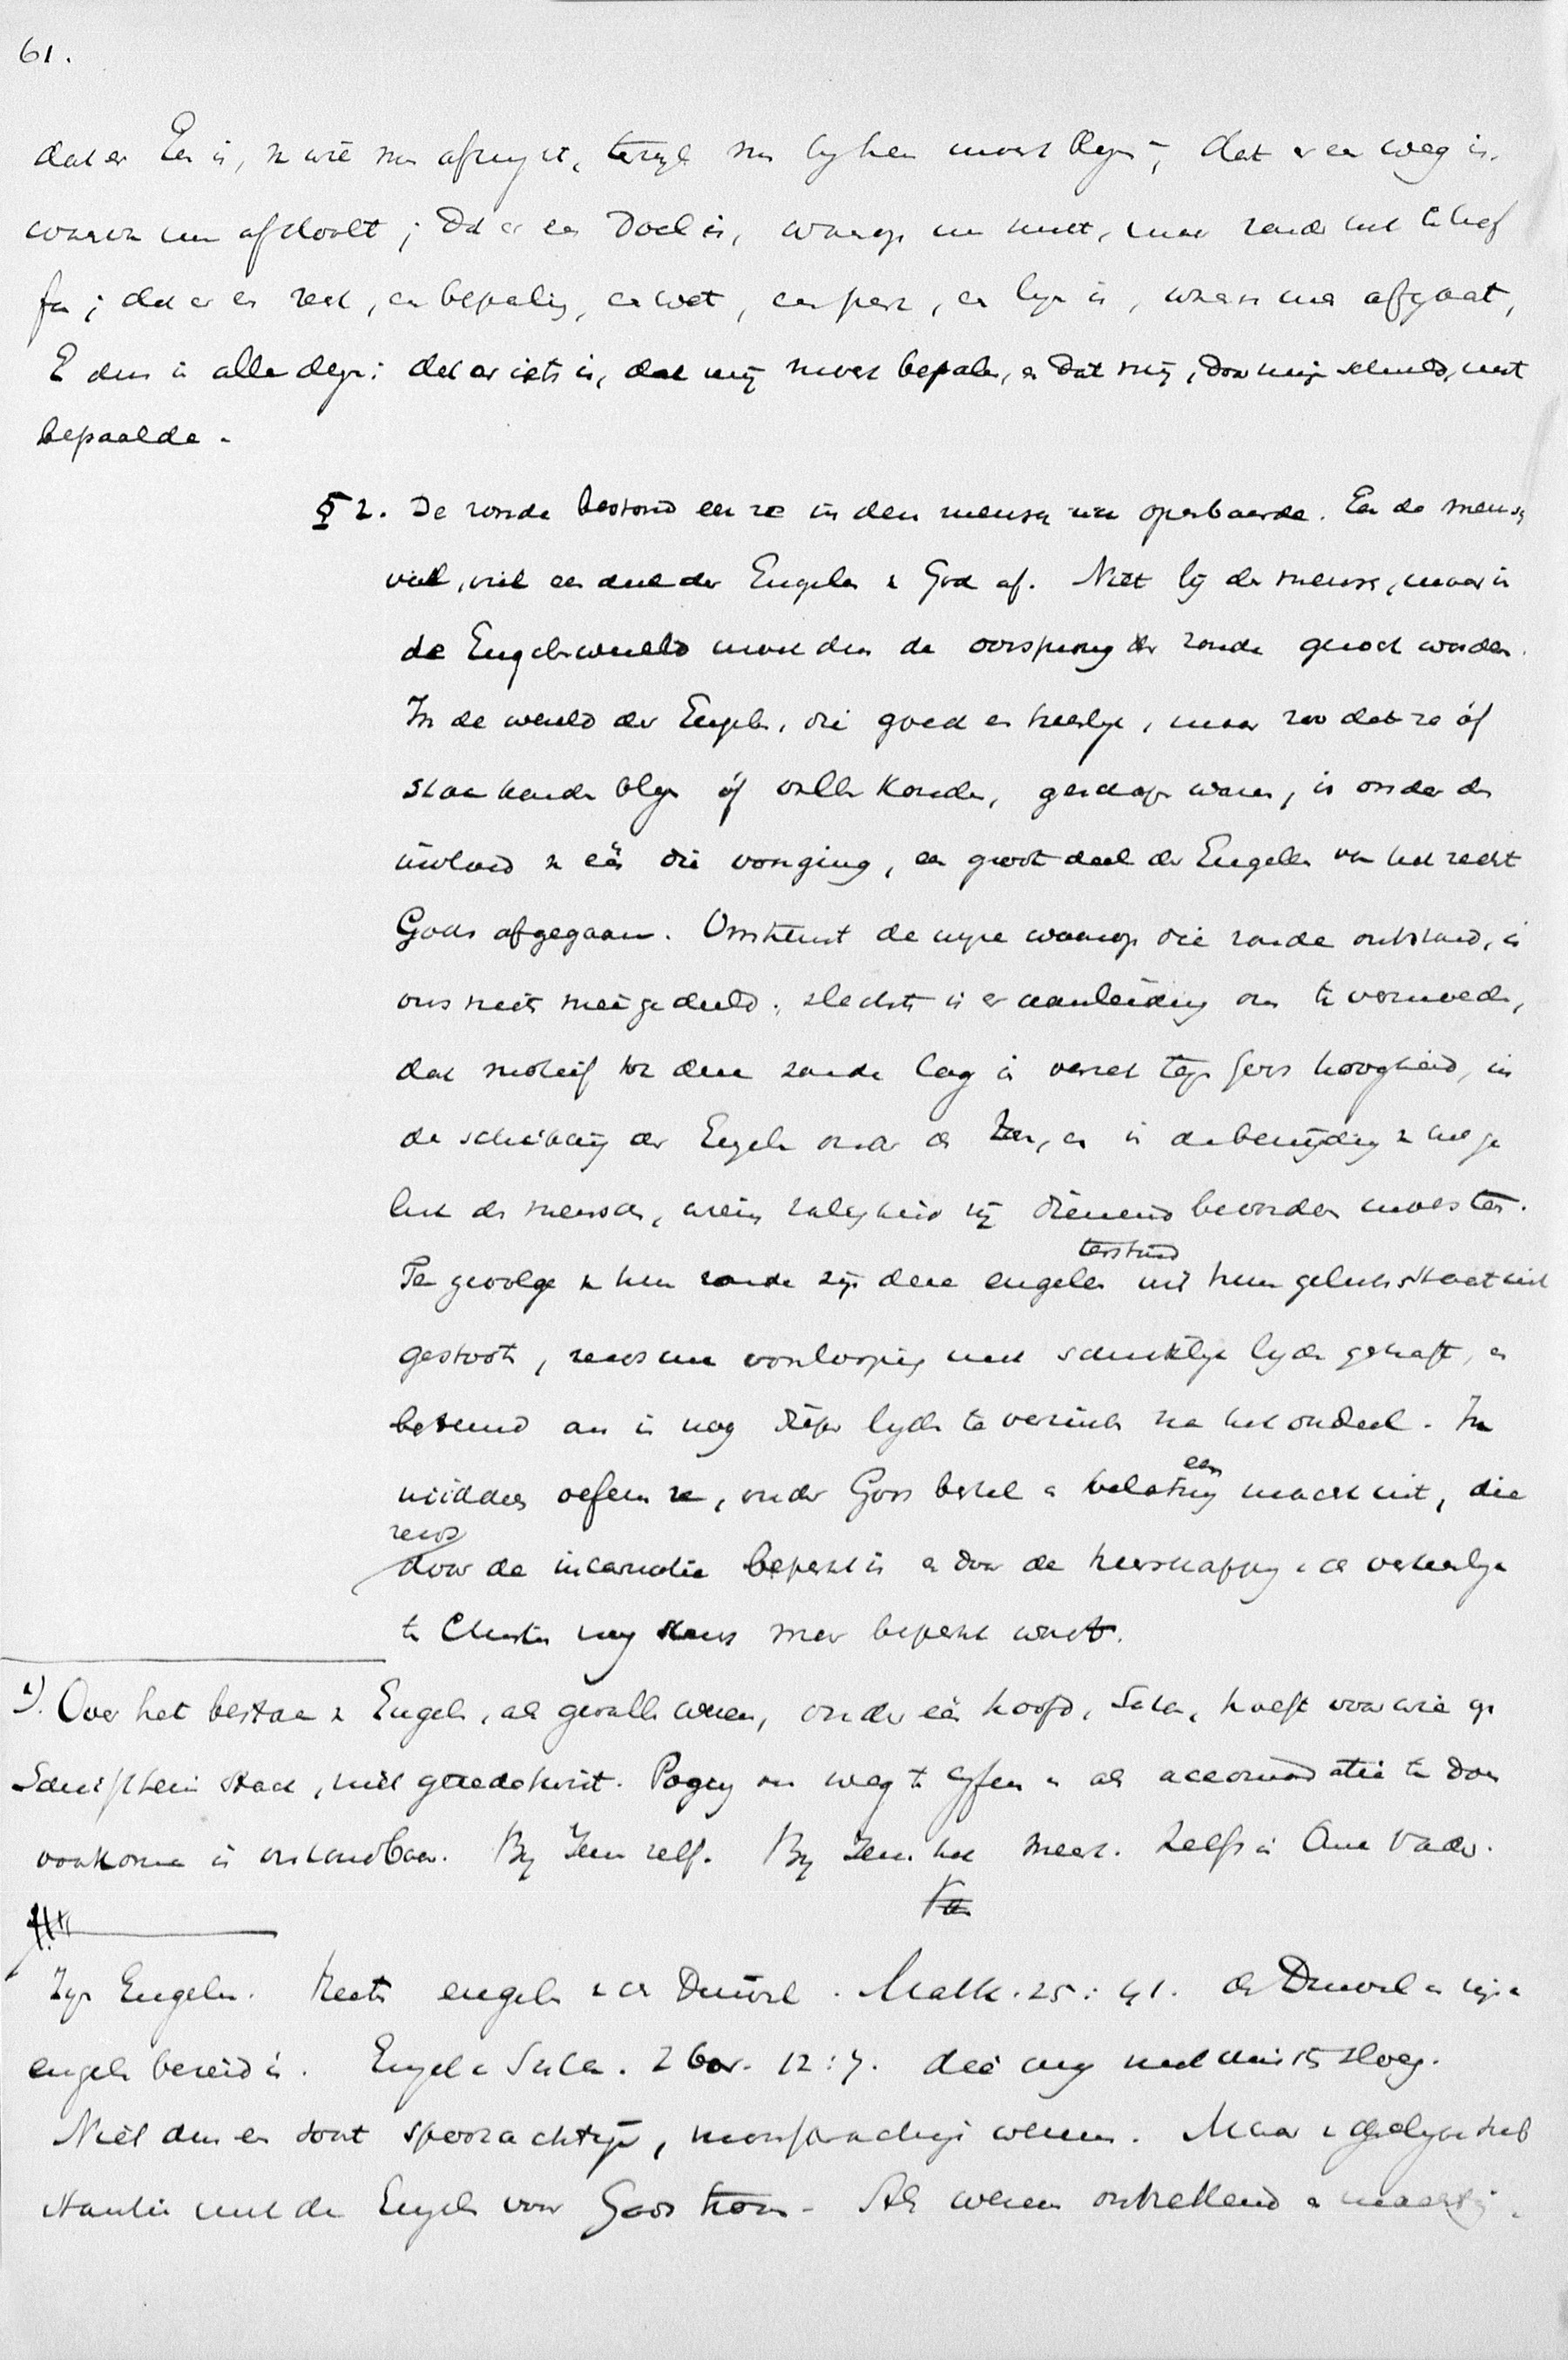 61.
dat er Een is, wie men afwykt, terwyl men by hem moest blyven; dat er een weg is,
waarvan men afdoolt; Dat er een Doel is, waarop men mikt, maar zonder het te tref
fen; dat er een recht, een bepaling, een wet, een perk, een lyn is, waarvan men afgaat,
En dus in alle dezen: dat er iets is, dat mij moest bepalen, en dat mij, door mijn schuld, niet
bepaalde.
§ 2. De zonde bestond eer ze in den mensch zich openbaarde. Eer de mensch
viel, viel een deel der Engelen van God af. Niet bij den mensch, maar in
de Engelenwereld moet dus de oorsprong der zonde gezocht worden.
In de wereld der Engelen, die goed en heerlyk, maar zoo dat ze óf
staande blyven óf vallen konden, geschapen waren, is onder den
invloed van eén die voorging, een groot deel der Engelen van het recht
Gods afgegaan. Omtrent de wyze waarop die zonde ontstond, is
ons niets meêgedeeld; slechts is er aanleiding om te vermoeden,
dat motief tot deze zonde lag in verzet tegen Gods hoogheid, in
de schikking der Engelen onder den Zoon, en in de benijding van het ge
luk der menschen, wier zaligheid zij dienend bevorderen moesten.
Ten gevolge van hun zonde zijn deze engelen terstond uit hun geluksstaat uit
gestooten, reeds nu voorloopig met schriklyk lyden gestraft, en
bestemd om in nog dieper lyden te verzinken na het oordeel. In
middels oefenen ze, onder Gods bestel en toelating een macht uit, die
reeds door de incarnatie beperkt is en door de heerschappy van den verheerlyk
ten Christus nog steeds meer beperkt wordt.
1). Over het bestaan van Engelen, als gevallen wezens, onder eén hoofd, Satan, hoeft voor wie op
Schriftterrein staat, niet geredekaveld. Poging om weg te cyferen en als accomodatie te doen
voorkomen is onhoudbaar. By Jezus zelf. By Jezus het meest. Zelfs in Onze Vader.
Zyn Engelen. Heeten engelen van den Duivel. Matth. 25:41. den Duivel en zijne
engelen bereid is. Engel van Satan. 2 Cor. 12:7. die my met vuisten sloeg.
Niet dus een soort spookachtige, monsterachtige wezens. Maar van gelyke sub
stantie met de Engelen voor Gods troon. Als wezens ontzettend en machtig.